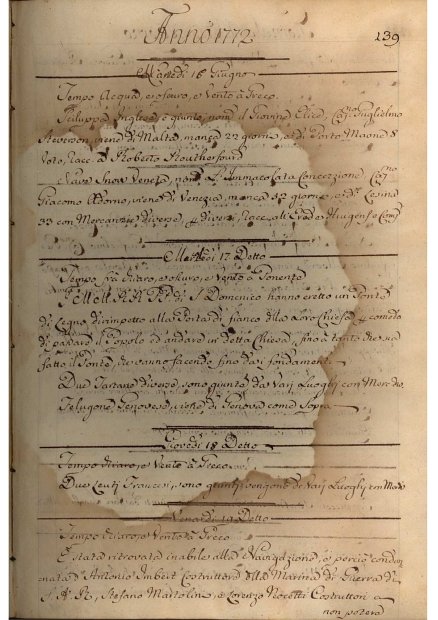 Anno 1772
139
Martedi 16 Giugno
Tempo Acqua, e oscuro, e Vento à Greco
Sciluppa Inglese è giunta, nom. il Fiorina Eliza, Cap.no Guglielmo
Stevenson, viene di Malta, manca 22 giorni, e di Porto Maone 8
Voto, Racc. à Roberto Routherfourd
Nave Snow Veneta, nom. L'Immacolata Concezzione, Cap.no
Giacomo Adorno, viene di Venezia, manca 52 giorni, e d.
33 con Mercanzie diverse, e diversi, Racc. alli Eredi Huigens e Comp.
Mercoledi 17 Detto
Tempo frà chiaro, e oscuro, e Vento à Ponente
I Molt. RR. PP. di S. Domenico hanno eretto un Ponte
di Legno dirimpetto alla Porta di fianco della Loro Chiesa, p comodo
di passare il Popolo ed andare in detta Chiesa, fino à tanto che sia
fatto il Ponte, che vanno facendo fino dai fondamenti
Due Tartane diverse, sono giunte da Varj Luoghi con Merc. div.
Felugone Genovese, viene di Genova come Sopra
Giovedi 18 Detto
Tempo chiaro, e Vento à Greco
Due Leuti Francesi, sono giunti, vengono da Varj Luoghi, con Mer.
Venerdi 19 Detto
Tempo chiaro, e Vento à Greco
È stata ritrovata inabile alla Navigazione, e perciò condan
nata d'Antonio Imbert Costruttore della Marina di Guerra di
S. A. R., Stefano Martolini, e Lorenzo Nocetti Costruttori e
non potere